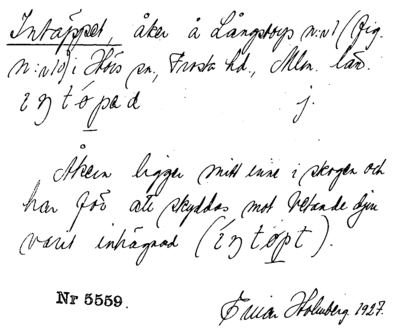 Intäppet, åker å Långstorps n:r 1 (fig.
n:r 10) i Hörs sn., Frosta hd., Mlm. län.
j.
Åkern ligger mitt inne i skogen och
har för att skyddas mot betande djur
varit inhägnad
Nr 5559.
Holmberg 1927.